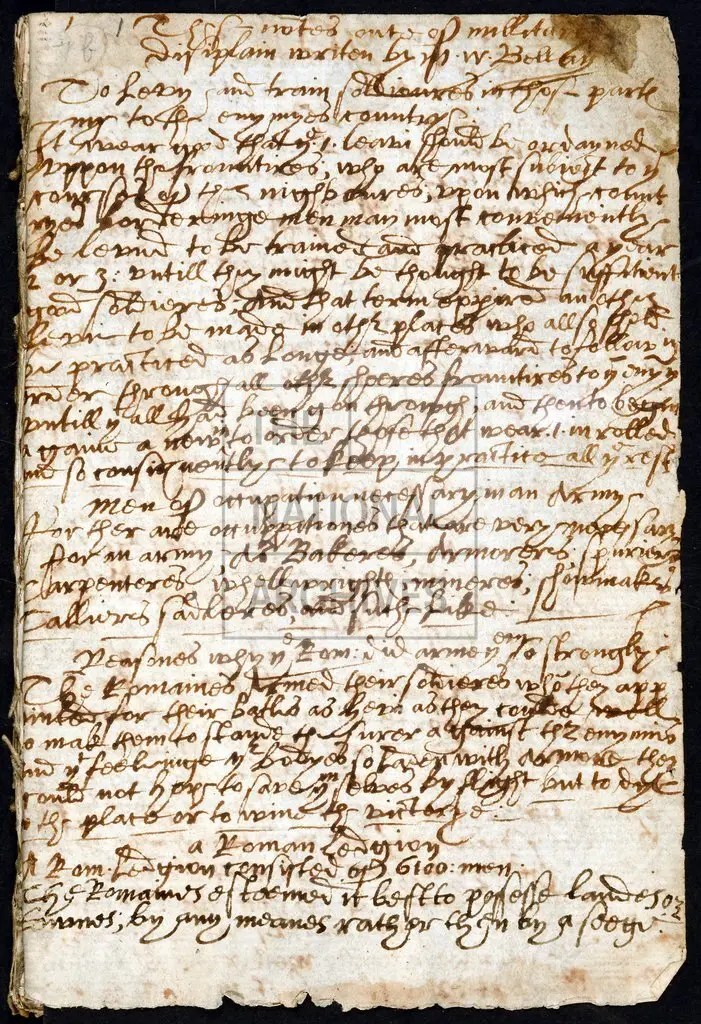 1 Thes notes out of millitar
disiplain writen by W. Bellay
To Levy and train sollioures in thos parts
ny to the enymyes country
It wear good that ye .1. leavi should be ordayned
uppon the fronntires, who are most subiect to ye
courses of ther nighboures, upon which count
ryes borderinge men may most conveniently
be levied to be trained and practiced a year
2 or 3: untill they might be thought to be suffitient
good soldieres, and that term expired an other
levie to be made in other places who allso shold
be practiced as longe and afterward to follow in
order through all other shyeres fronntires to ye enymy
untill ye all had been gon through, and then to begin
againe a new to order those that wear .1. inrolled
and so consiquently to keep in practice all ye rest
Men of occupation necessary in an Army
For ther are occupationes that are very necessary
for an army, as Bakeres, Armoreres,
Carpenteres, whellwrights, mineres, showmakers
Talliers sadleres, and such like
Reasones why ye Rom: did arme them so strongly
The Romaines Armed their soldieres whom they app
inted for their batles as hevi as they could, well
to mak them to stande the surer against the enymies
and ye feelinge yr bodyes so laden with armore they
could not hope to save ym selves by flight but to dye
in the place or to wine the victorye
a Roman Ledgion
A Rom. Ledgion consisted of 6100: men.
The Romaines esteemed it best to posesse landes or
townes, by any meanes rather then by a seege.
THE
NATIONAL
ARCHIVES